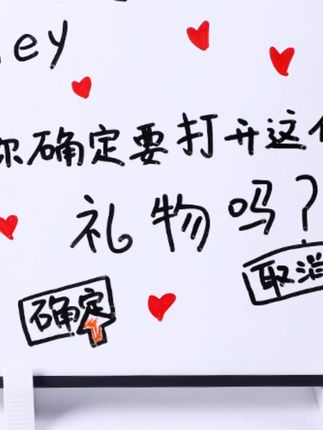 ey
你确定要打开这个
礼物吗?
取消
确定